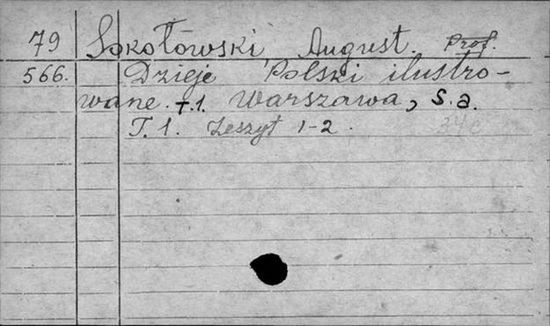 79 Sokołowski August. Prof.
566. Dzieje Polski ilustro-
wane. t.1. Warszawa, s.a.
T. 1. Zeszyt 1-2.